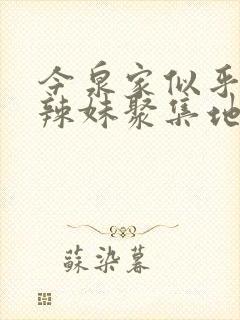 今泉家似乎
辣妹聚集地
蘇染暮